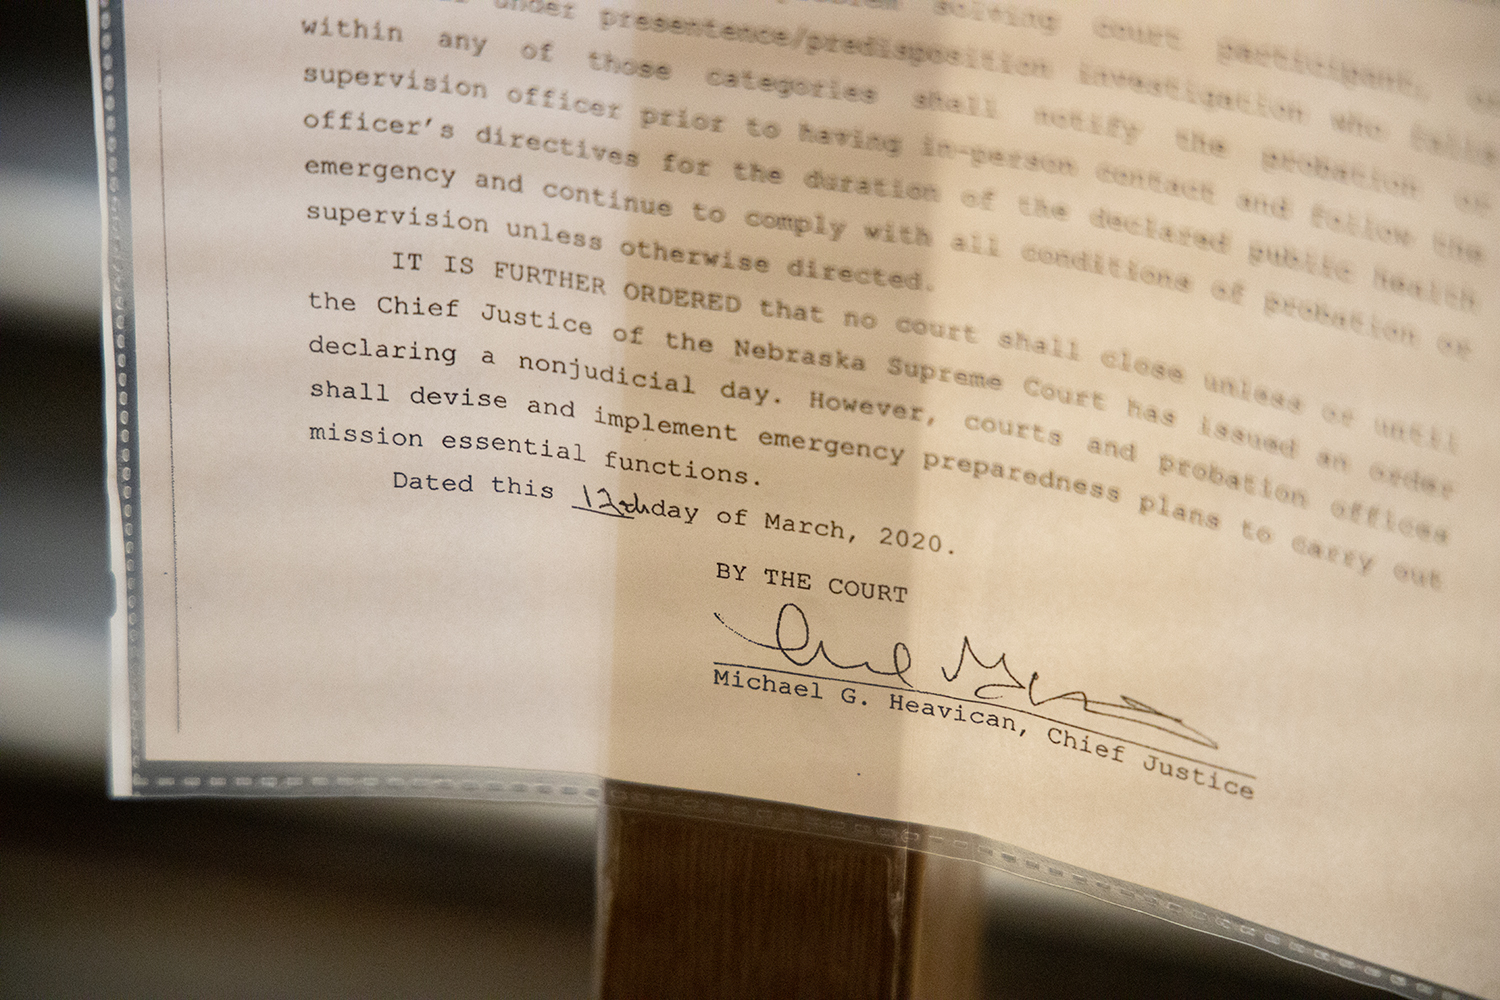 solving court participant, or
under presentence/predisposition investigation who falls
within any of those categories shall notify the probation or
supervision officer prior to having in-person contact and follow the
officer's directives for the duration of the declared public health
emergency and continue to comply with all conditions of probation or
supervision unless otherwise directed.
IT IS FURTHER ORDERED that no court shall close unless or until
the Chief Justice of the Nebraska Supreme Court has issued an order
declaring a nonjudicial day. However, courts and probation offices
shall devise and implement emergency preparedness plans to carry out
mission essential functions.
Dated this 12th day of March, 2020.
BY THE COURT
Michael G. Heavican, Chief Justice